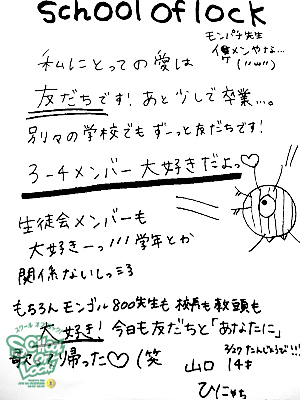 SCHOOL OF LOCK
モンパチ先生
イケメンやな…
(〃ω〃)
私にとっての愛は
友だちです！あと少しで卒業…。
別々の学校でも ずーっと友だちです！
3-4メンバー 大好きだよっ♡
生徒会メンバーも
大好きーっ!!! 学年とか
関係ないしっ
もちろん モンゴル800先生も 校長も教頭も
大好き！ 今日も友だちと「あなたに」
歌って帰った♡ (笑
3/27 たんじょうび!!!
山口 14才
ひにゃち
スクール オブ
School of Lock